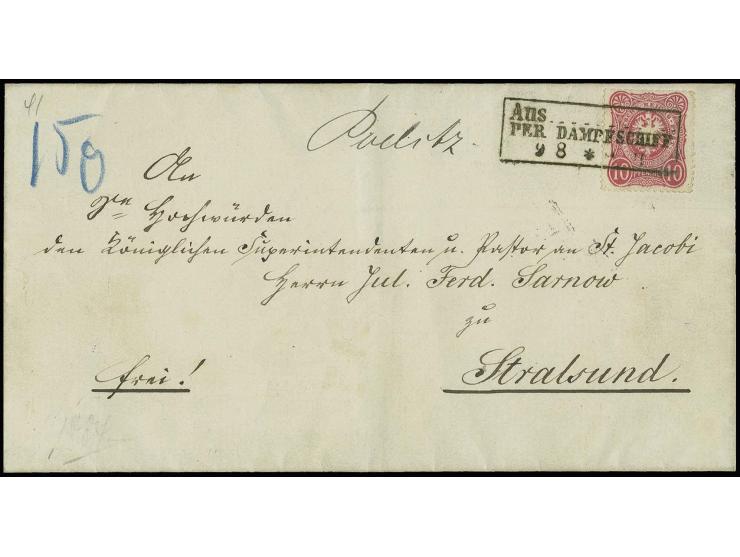 41
150
Poelitz.
Aus . . . . . .
PER DAMPFSCHIFF
9 8 *
10 10
An
Sr. Hochwürden
den Königlichen Superintendenten u. Pastor an St. Jacobi
Herrn Jul. Ferd. Sarnow
zu
frei! Stralsund.